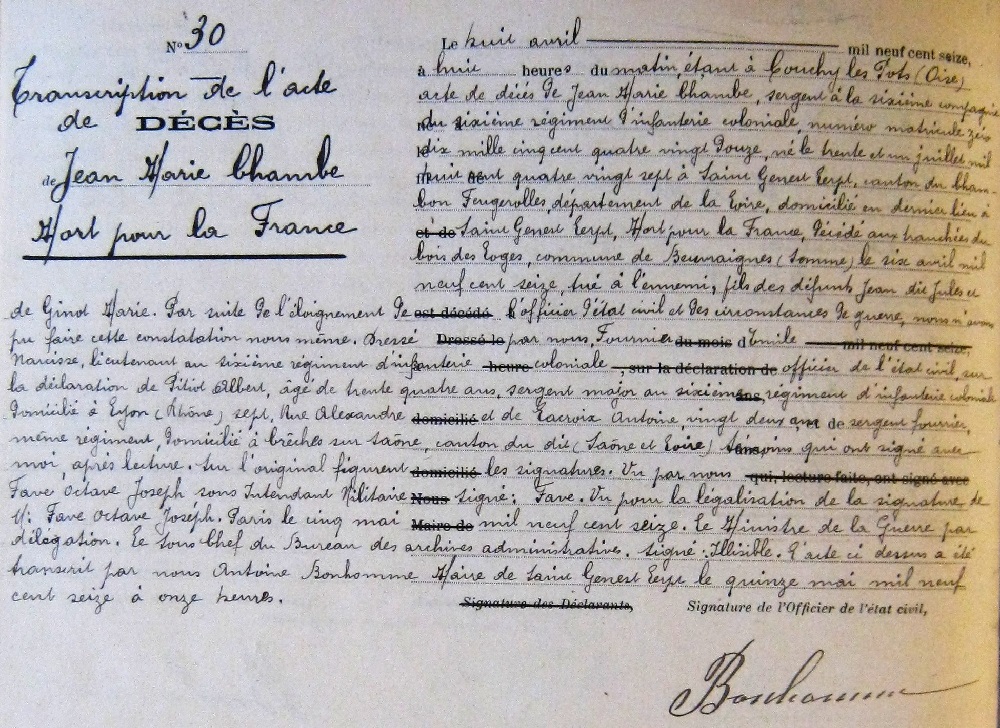 N° 30
Transcription de l'acte
de DÉCÈS
de Jean Marie Chambe
Mort pour la France
Le huit avril mil neuf cent seize,
à huit heures du matin, étant à Conchy les Pots (Oise)
acte de décès de Jean Marie Chambe, sergent à la sixième compagnie
du sixième régiment d'infanterie coloniale, numéro matricule
dix mille cinq cent quatre vingt douze, né le trente et un juillet mil
huit cent quatre vingt sept à Saint Genest Lerpt, canton du Cham-
bon Feugerolles, département de la Loire, domicilié en dernier lieu à
et de Saint Genest Lerpt, Mort pour la France, décédé aux tranchées du
bois des Loges, commune de Beuvraignes (Somme) le six avril mil
neuf cent seize, tué à l'ennemi, fils des défunts Jean dit Jules et
de Ginot Marie. Par suite de l'éloignement de est décédé l'officier d'état civil et des circonstances de guerre, nous n'avons
pu faire cette constatation nous même. Dressé Dressé le par nous, Fournier du mois d'Emile mil neuf cent seize,
Narcisse, lieutenant au sixième régiment d'infanterie heure coloniale, sur la déclaration de officier de l'état civil, sur
la déclaration de Pitiot Albert, âgé de trente quatre ans, sergent major au sixième ans régiment d'infanterie coloniale
domicilié à Lyon (Rhône) sept, Rue Alexandre domicilié et de Lacroix Antoine, vingt deux ans et de sergent fourrier,
même régiment, domicilié à brèches sur Saône, canton du dit (Saône et Loire) témoins qui ont signé avec
moi, après lecture. Sur l'original figurent domicilié les signatures. Vu par nous qui, lecture faite, ont signé avec
Fave Octave Joseph sous Intendant Militaire Nous Signé: Fave. Vu pour la légalisation de la signature de
M: Fave Octave Joseph. Paris le cinq mai Maire de mil neuf cent seize. Le Ministre de la Guerre par
délégation. Le Sous-Chef du Bureau des archives administratives. Signé: Illisible. L'acte ci dessus a été
transcrit par nous Antoine Bonhomme Maire de Saint Genest Lerpt le quinze mai mil neuf
cent seize à onze heures.
Signature des Déclarants, Signature de l'Officier de l'état civil,
Bonhomme